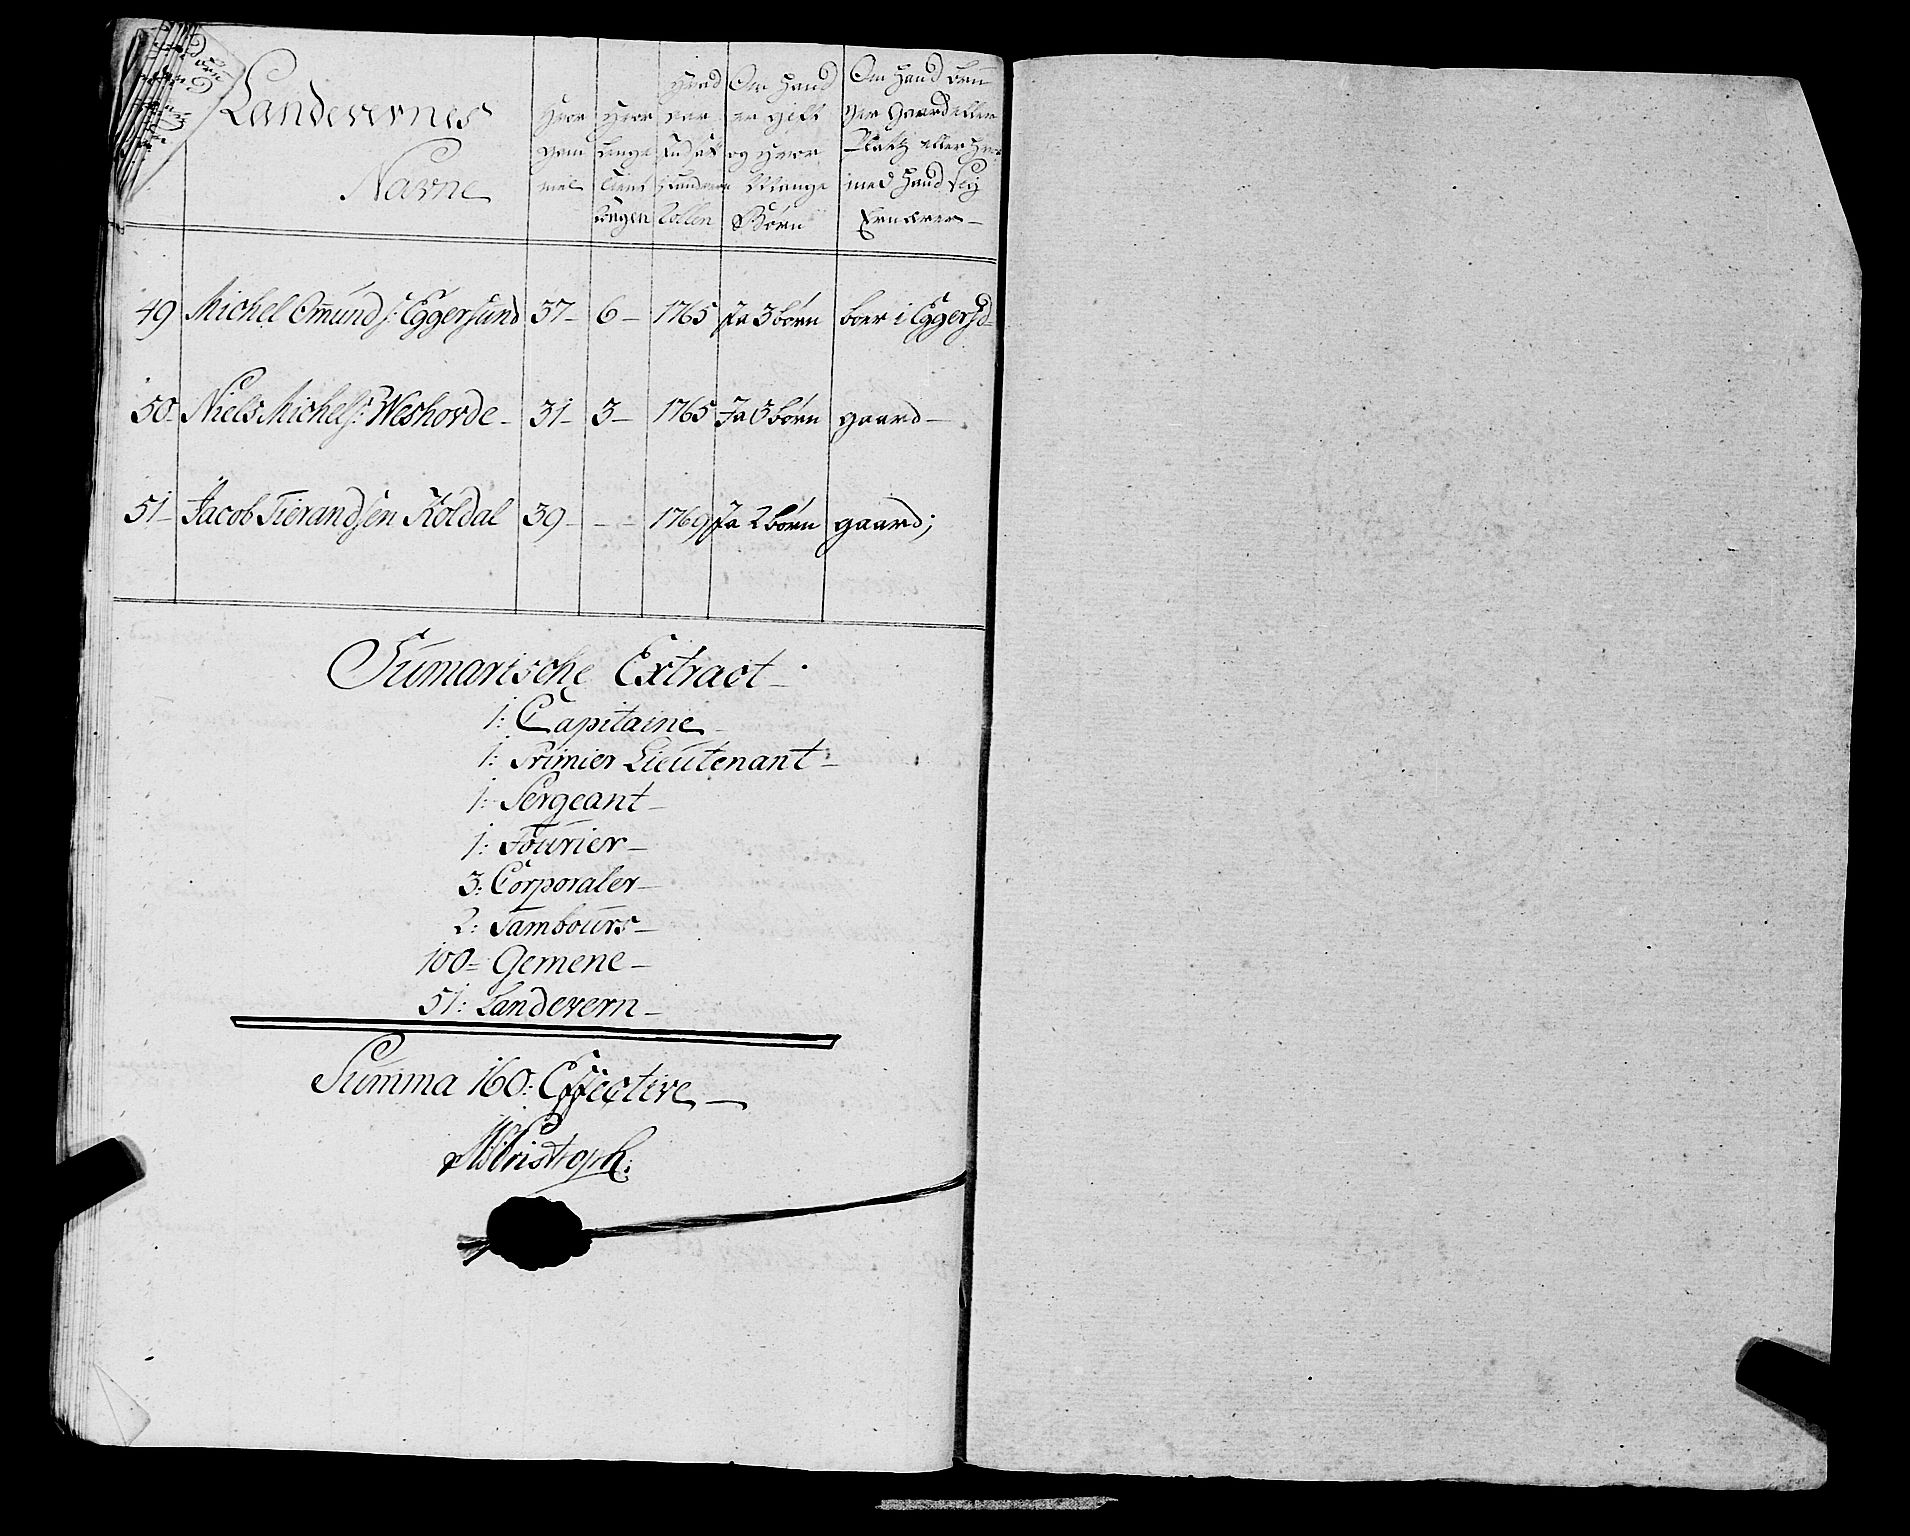 Landevernes
Navne
Hvor
gam
mel
Hvor
lenge
tient
Kongen
Hvad
aar
Indsat
i Landværn
Rollen
Om Hand
er gift
og Hvor
Mange
Børn
Om Hand bru
ger Gaard eller
Platz eller Hvor
med Hand sig
Ernærer
49 Michel Omunds: Eggersund 37 6 1765 Ja 3 børn boer i Eggersd
50 Niels Michels: Weshovde 31 3 1765 Ja 3 børn gaard
51 Jacob Tierandsen Koldal 39 - - 1769 Ja 2 børn gaard;
Sumarische Extract
1: Capitaine
1: Primier Lieutenant
1: Sergeant
1: Fourier
3: Corporaler
2: Tambours
100 Gemene
51: Landevern
Summa 160: Effective